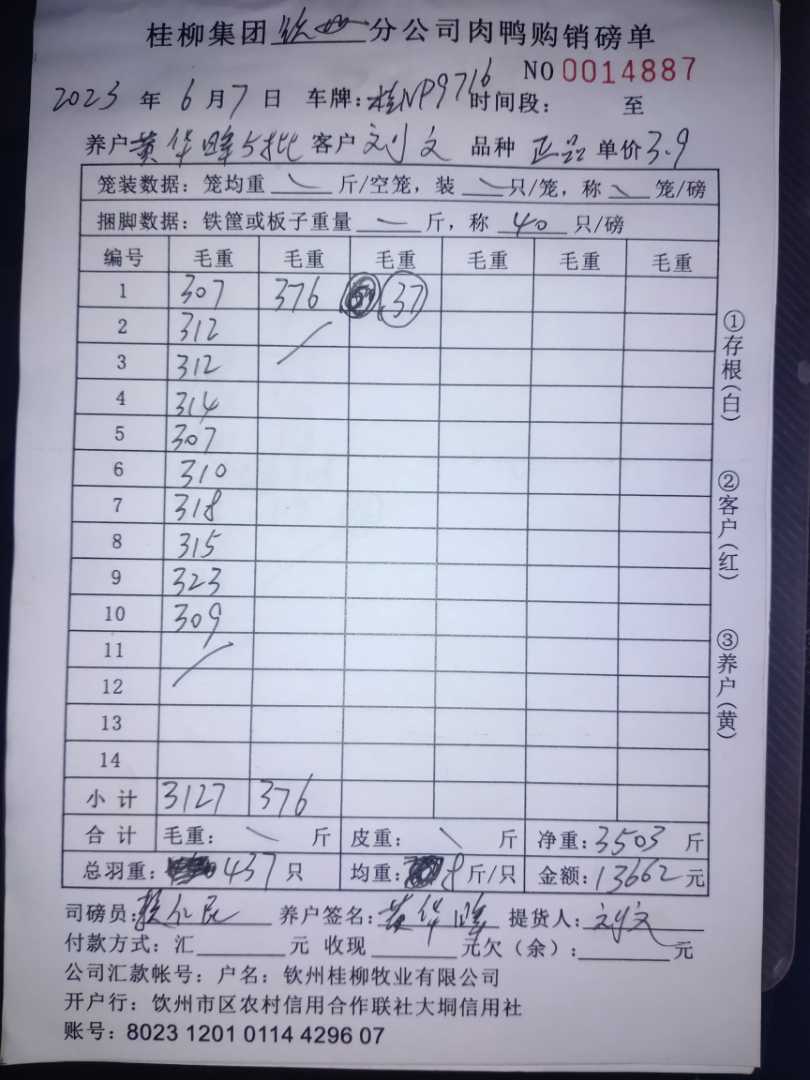 桂柳集团钦州分公司肉鸭购销磅单
NO 0014887
2023 年 6 月 7 日 车牌：桂NP9716 时间段： 至
养户 黄华峰5批 客户 刘文 品种 正品 单价 3.9
笼装数据：笼均重 斤/空笼，装 只/笼，称 笼/磅
捆脚数据：铁筐或板子重量 斤，称 40 只/磅
编号 毛重 毛重 毛重 毛重 毛重 毛重
1 307 376 37
2 312
3 312
4 314
5 307
6 310
7 318
8 315
9 323
10 309
11
12
13
14
小计 3127 376
合计 毛重： 斤 皮重： 斤 净重：3503 斤
总羽重： 437 只 均重： 8 斤/只 金额：13662 元
司磅员： 养户签名：黄华峰 提货人：刘文
付款方式：汇 元 收现 元欠（余）： 元
公司汇款帐号：户名：钦州桂柳牧业有限公司
开户行：钦州市区农村信用合作联社大垌信用社
账号：8023 1201 0114 4296 07
①存根（白）
②客户（红）
③养户（黄）